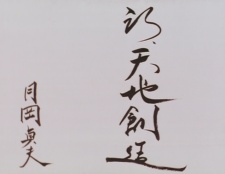 詩、天地創造
月岡貞夫